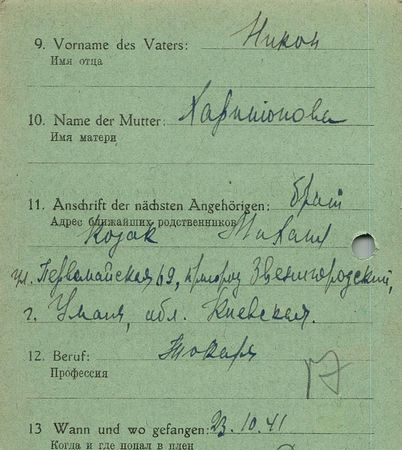 9. Vorname des Vaters: Никон
Имя отца
10. Name der Mutter: Харитонова
Имя матери
11. Anschrift der nächsten Angehörigen: брат
Адрес ближайших родственников
Козак Михаил
ул. Первомайская 69, пригород Звенигородский,
г. Умань, обл. Киевская.
12. Beruf: Токарь
Профессия
13 Wann und wo gefangen: 23.10.41
Когда и где попал в плен